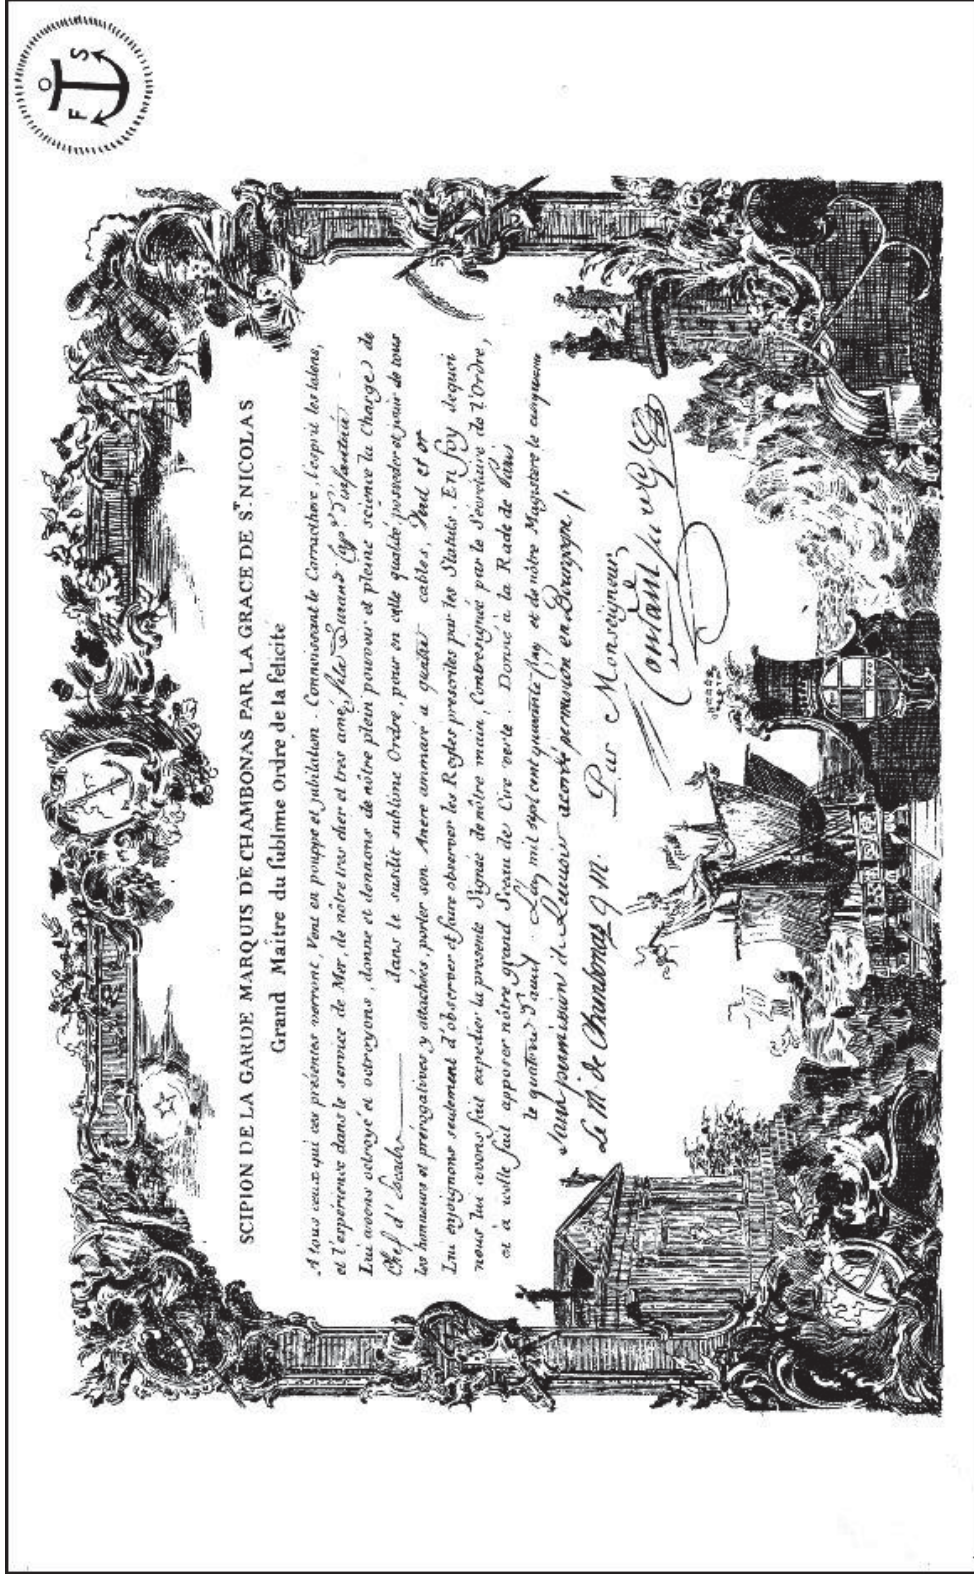 F S
SCIPION DE LA GARDE MARQUIS DE CHAMBONAS PAR LA GRACE DE S.T NICOLAS
Grand Maitre du sublime Ordre de la félicité
A tous ceux qui ces présentes verront, Vent en pouppe et jubilation. Connoissant le Carracthere, l'esprit les talens,
et l'espérience dans le service de Mer, de nôtre tres cher et tres amé, fils Durand Cap.e d'infanterie
Lui avons octroyé et octroyons, donné et donnons de nôtre plein pouvoir et pleine science la Charge de
Chef d'Escadre dans le susdit sublime Ordre, pour en celle qualité posseder et jouir de tous
les honneurs et prérogatives y attachées, porter son Ancre ammaré a quatre cables, Verd et or
Lui enjoignons seulement d'observer et faire observer les Regles prescrites par les Statuts. En foy dequoi
nous lui avons fait expedier la presente Signée de nôtre main, Contresignée par le Sécretaire de l'Ordre,
et à icelle fait apposer nôtre grand Sceau de Cire verte. Donné à la Rade de Paris
le quatorze d'aust L'an mil sept cent quarante cinq et de nôtre Magistere le cinquieme
acordé permission en Bourgogne
Le M.is de Chambonas G M Par Monseigneur,